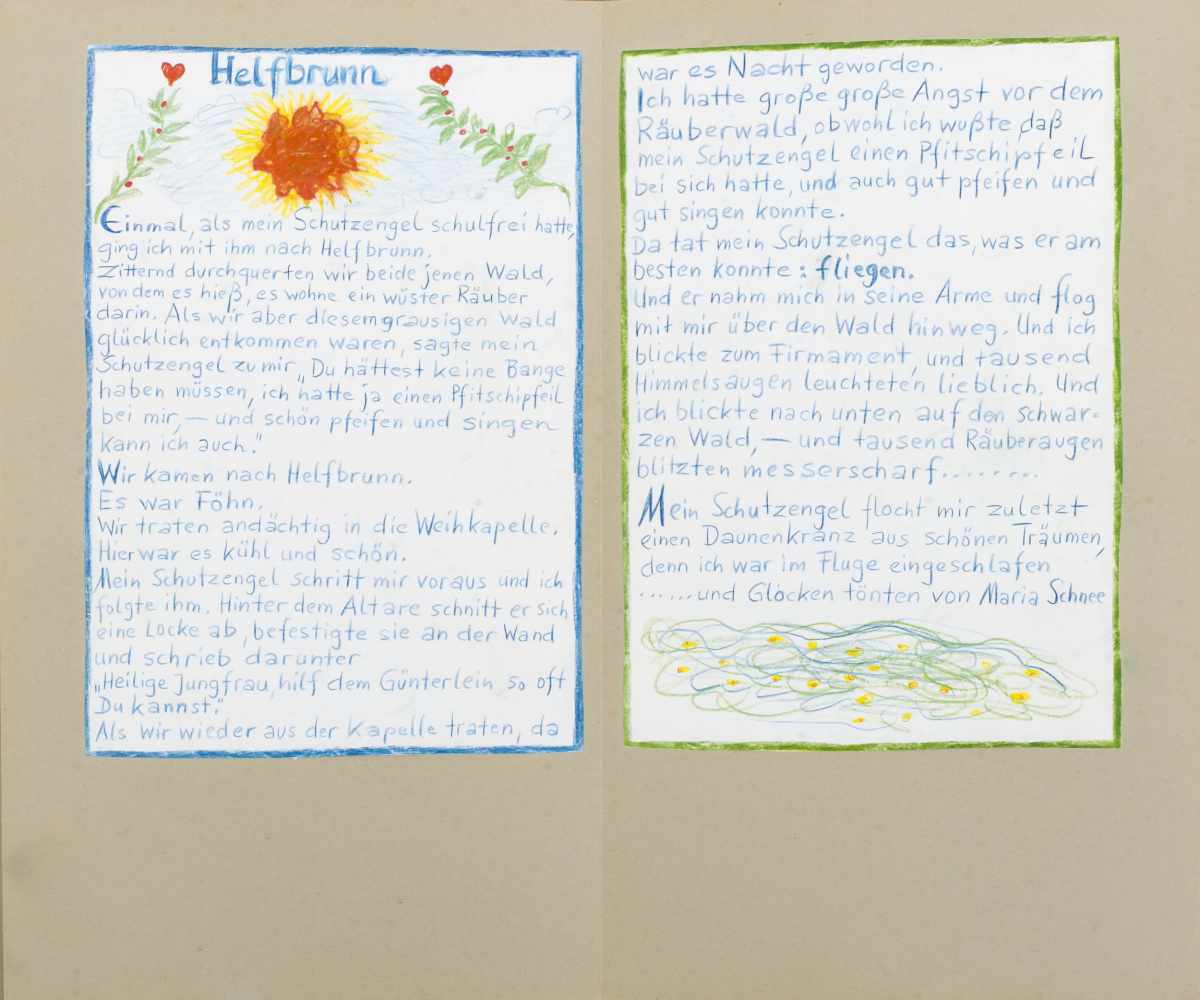 Helfbrunn
Einmal, als mein Schutzengel schulfrei hatte,
ging ich mit ihm nach Helfbrunn.
Zitternd durchquerten wir beide jenen Wald,
von dem es hieß, es wohne ein wüster Räuber
darin. Als wir aber diesem grausigen Wald
glücklich entkommen waren, sagte mein
Schutzengel zu mir „Du hättest keine Bange
haben müssen, ich hatte ja einen Pfitschipfeil
bei mir, — und schön pfeifen und singen
kann ich auch."
Wir kamen nach Helfbrunn.
Es war Föhn.
Wir traten andächtig in die Weihkapelle.
Hier war es kühl und schön.
Mein Schutzengel schritt mir voraus und ich
folgte ihm. Hinter dem Altare schnitt er sich
eine Locke ab, befestigte sie an der Wand
und schrieb darunter
„Heilige Jungfrau, hilf dem Günterlein so oft
Du kannst."
Als wir wieder aus der Kapelle traten, da
war es Nacht geworden.
Ich hatte große große Angst vor dem
Räuberwald, obwohl ich wußte, daß
mein Schutzengel einen Pfitschipfeil
bei sich hatte, und auch gut pfeifen und
gut singen konnte.
Da tat mein Schutzengel das, was er am
besten konnte: fliegen.
Und er nahm mich in seine Arme und flog
mit mir über den Wald hinweg. Und ich
blickte zum Firmament, und tausend
Himmelsaugen leuchteten lieblich. Und
ich blickte nach unten auf den schwar=
zen Wald, — und tausend Räuberaugen
blitzten messerscharf.........
Mein Schutzengel flocht mir zuletzt
einen Daunenkranz aus schönen Träumen,
denn ich war im Fluge eingeschlafen
......und Glocken tönten von Maria Schnee